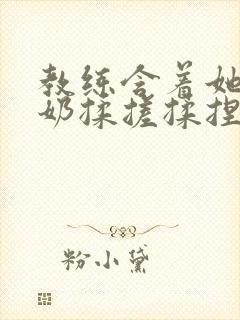 教练含着她
奶揉搓揉捏
粉小黛